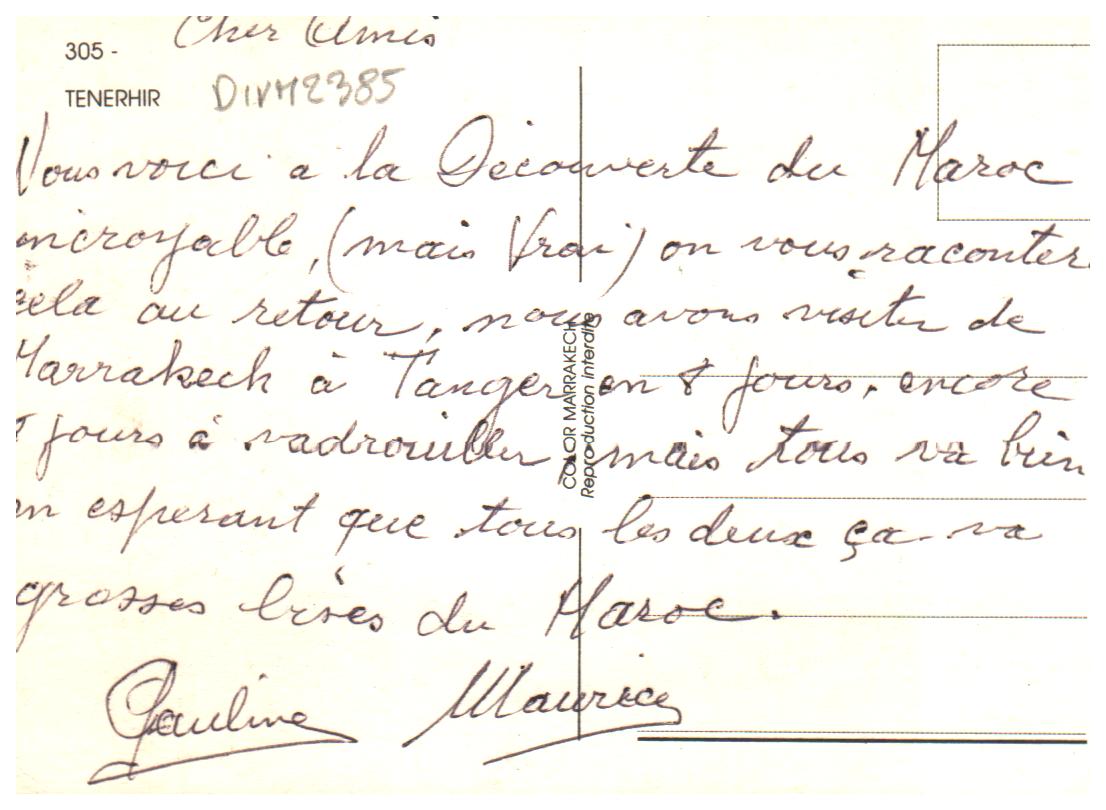 Cher Amis
305 -
TENERHIR
DIVM2385
Vous voici a la Découverte du Maroc
incroyable, (mais Vrai) on vous raconter
cela au retour, nous avons visiter de
Marrakech à Tanger en 8 jours, encore
8 jours à vadrouiller, mais tous va bien
en esperant que tous les deux ça va
grosses bises du Maroc.
Pauline Maurice
COLOR MARRAKECH
Reproduction interdite